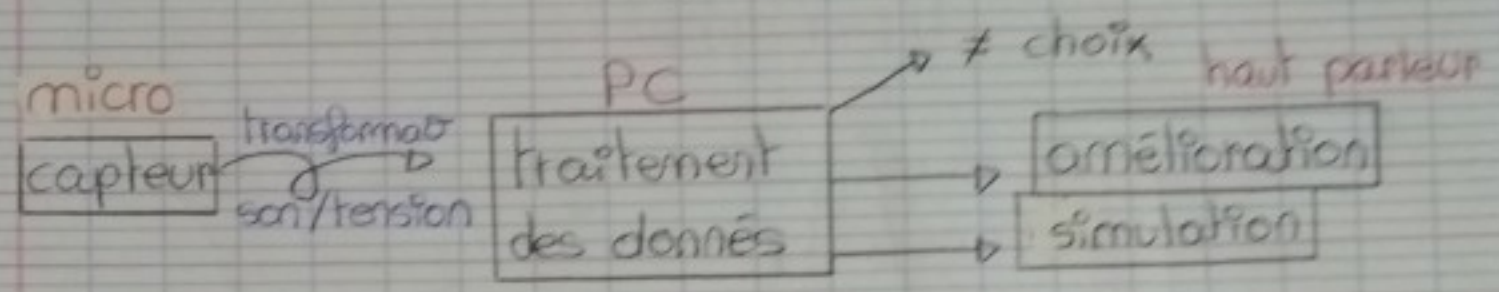 micro
capteur
transformat°
son/tension
PC
traitement
des donnés
≠ choix
haut parleur
amélioration
simulation